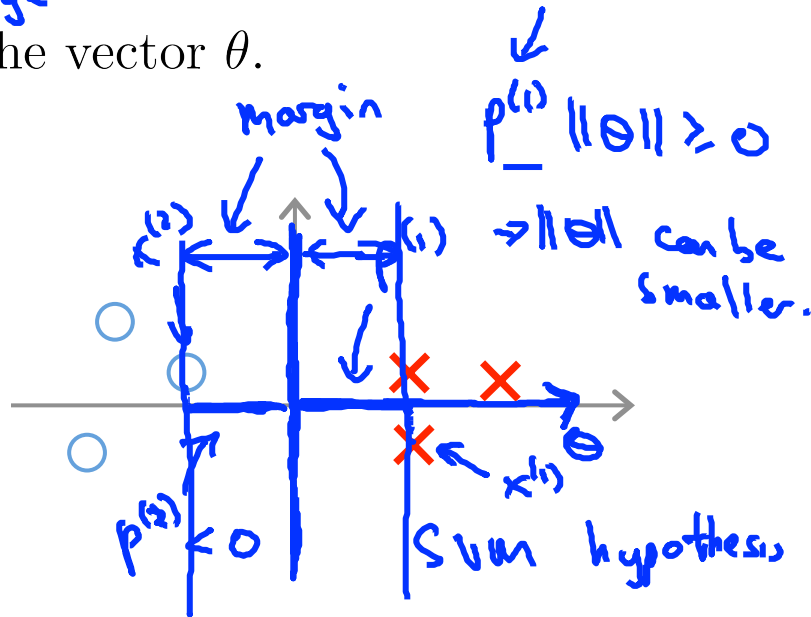 he vector θ.
margin
p^(1) ||θ|| ≥ 0
→ ||θ|| can be
smaller.
x^(2)
p^(1)
θ
x^(1)
p^(2) < 0
SVM hypothesis